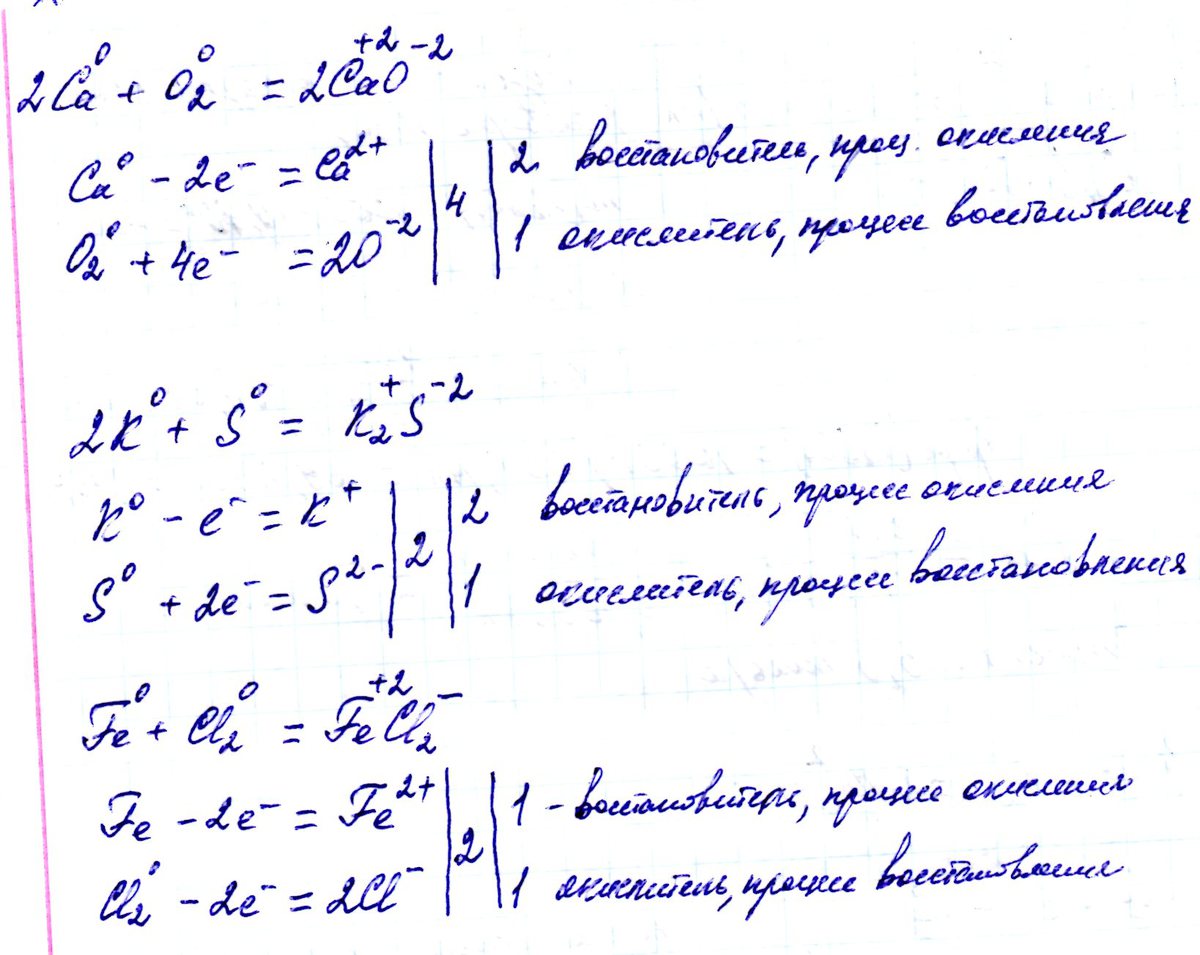 2Ca⁰ + O₂⁰ = 2Ca⁺²O⁻²
Ca⁰ - 2e⁻ = Ca²⁺ | 4 | 2 восстановитель, проц. окисления
O₂⁰ + 4e⁻ = 2O⁻² | 1 окислитель, процесс восстановления
2K⁰ + S⁰ = K₂⁺S⁻²
K⁰ - e⁻ = K⁺ | 2 | 2 восстановитель, процесс окисления
S⁰ + 2e⁻ = S²⁻ | 1 окислитель, процесс восстановления
Fe⁰ + Cl₂⁰ = Fe⁺²Cl₂⁻
Fe - 2e⁻ = Fe²⁺ | 2 | 1 - восстановитель, процесс окисления
Cl₂⁰ - 2e⁻ = 2Cl⁻ | 1 окислитель, процесс восстановления